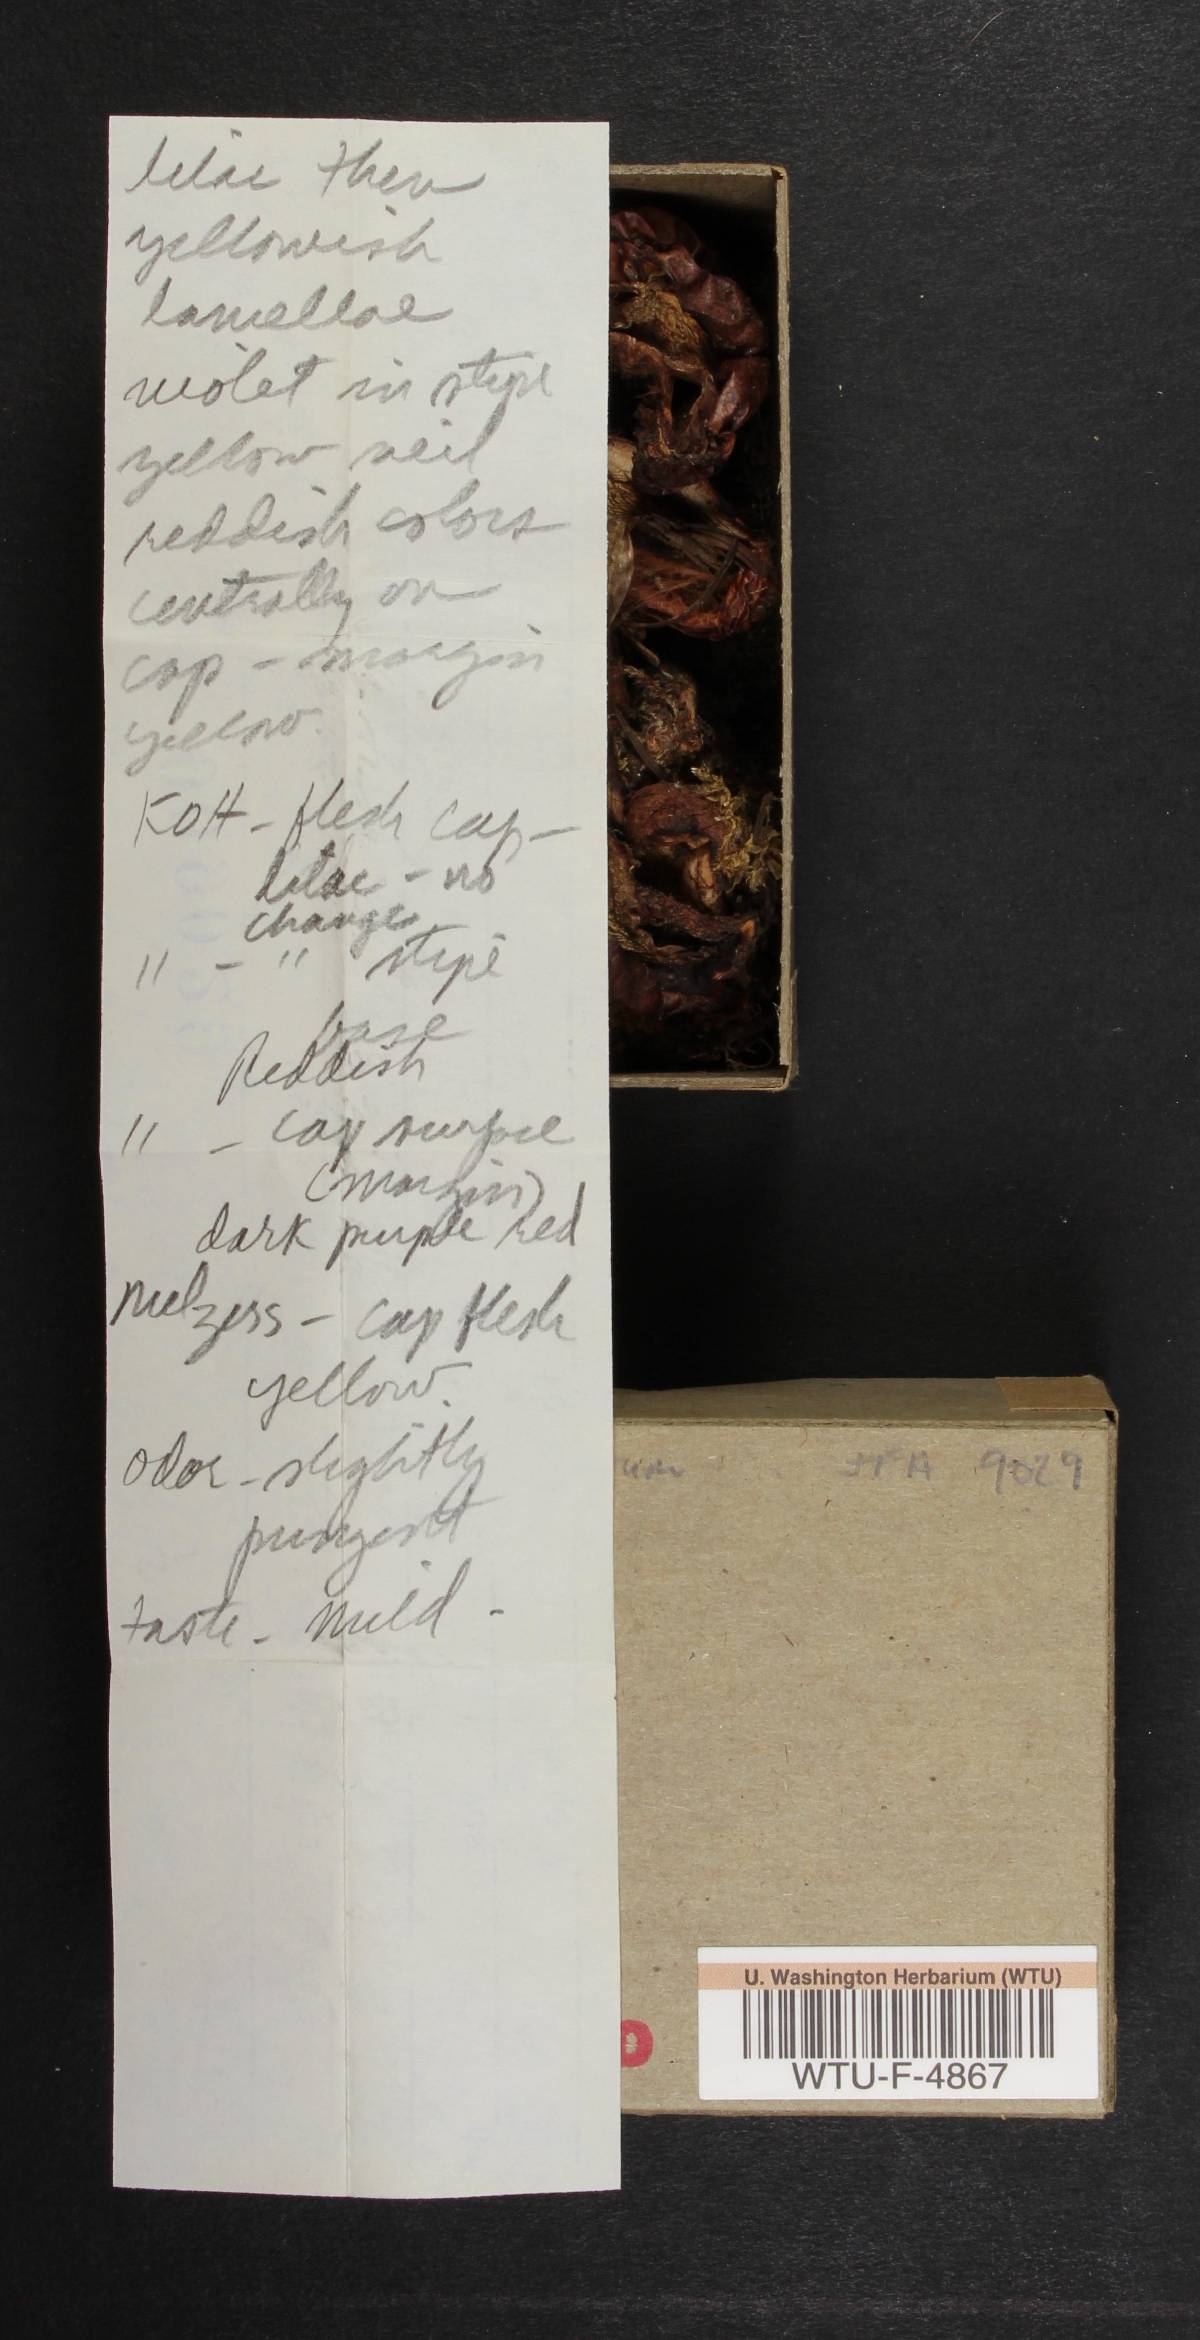 lilac then
yellowish
lamellae
violet in stipe
yellow veil
reddish colors
centrally on
cap - margin
yellow.
KOH - flesh cap -
lilac - no
change
" - " stipe
base
Reddish
" - cap surface
(margin)
dark purple red
Melzers - cap flesh
yellow.
odor - slightly
pungent
taste - mild -
9029
U. Washington Herbarium (WTU)
WTU-F-4867